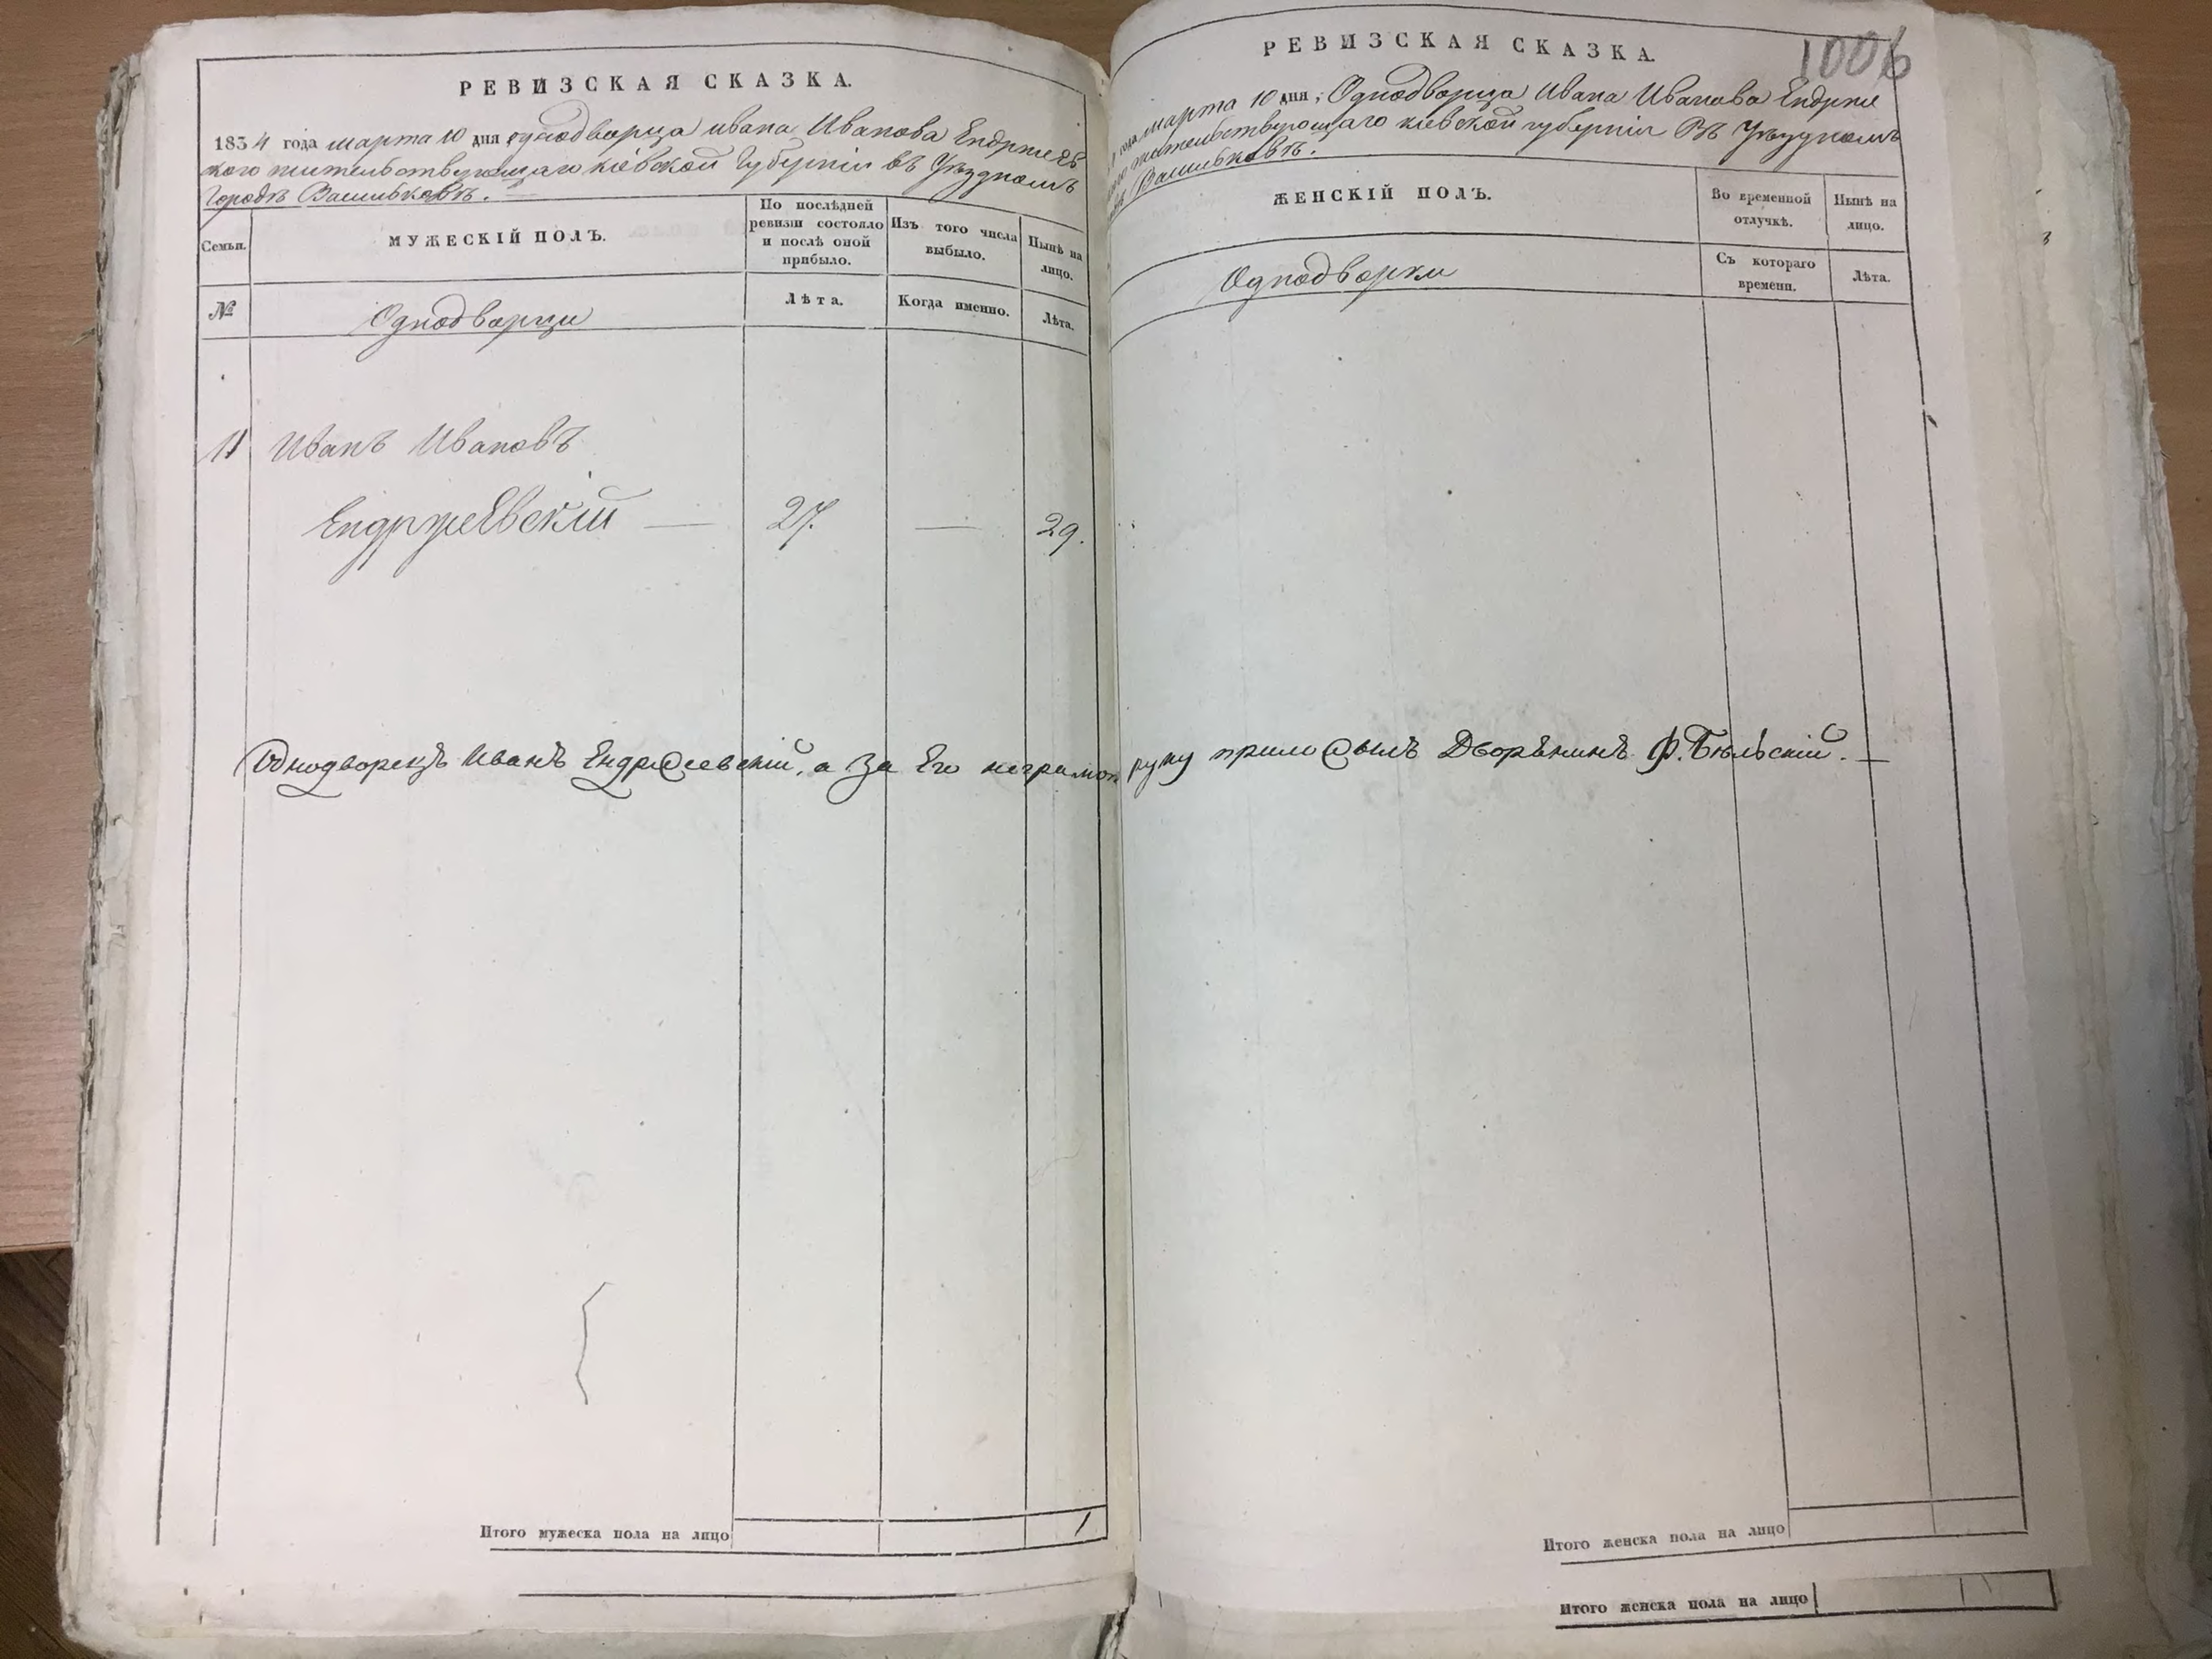 РЕВИЗСКАЯ СКАЗКА.
1834 года марта 10 дня Однодворца Ивана Иванова Ендржеевс
кого жительствующаго Кіевской Губерніи въ Уѣздномъ
Городѣ Васильковѣ.
Семьи.
МУЖЕСКІЙ ПОЛЪ.
По послѣдней
ревизіи состояло
и послѣ оной
прибыло.
Изъ того числа
выбыло.
Нынѣ на
лицо.
№
Однодворцы
Лѣта.
Когда именно.
Лѣта.
11 Иванъ Ивановъ
Ендржеевскій — 27. — 29.
Однодворецъ Иванъ Ендржеевскій, а за Его неграмот
Итого мужеска пола на лицо 1
РЕВИЗСКАЯ СКАЗКА.
1006
года марта 10 дня, Однодворца Ивана Иванова Ендрже
жительствующаго Кіевской губерніи Въ Уѣздномъ
Васильковѣ.
ЖЕНСКІЙ ПОЛЪ.
Во временной
отлучкѣ.
Нынѣ на
лицо.
Однодворки
Съ котораго
времени.
Лѣта.
руку приложилъ Дворѣнинъ Ф. Бѣльскій. —
Итого женска пола на лицо
Итого женска пола на лицо